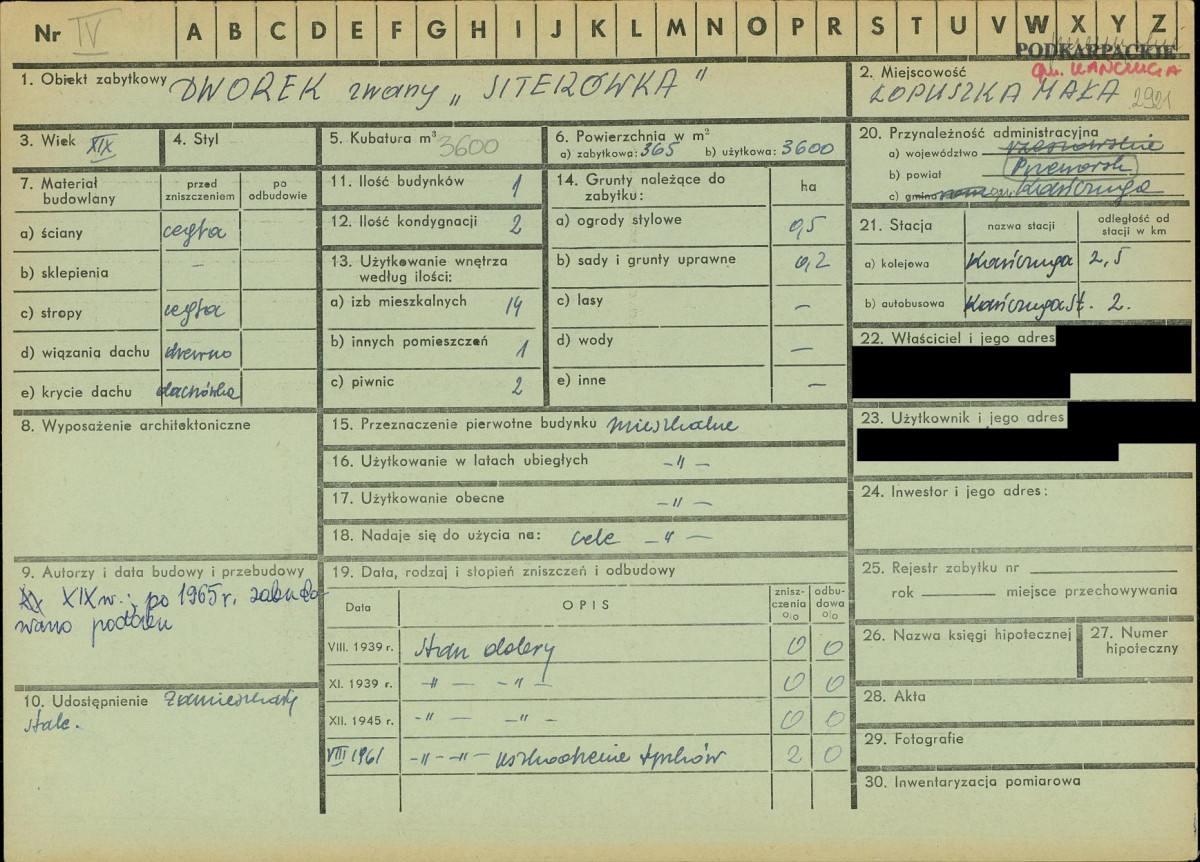 Nr IV A B C D E F G H I J K L M N O P R S T U V W X Y Z
PODKARPACKIE
gm. KAŃCZUGA
1. Obiekt zabytkowy DWOREK zwany „SITERÓWKA"
2. Miejscowość
ŁOPUSZKA MAŁA 2921
3. Wiek XIX
4. Styl
5. Kubatura m³ 3600
6. Powierzchnia w m²
a) zabytkowa: 365 b) użytkowa: 3600
20. Przynależność administracyjna
a) województwo rzeszowskie
b) powiat Przeworsk
c) gmina Kańczuga
7. Materiał budowlany
przed zniszczeniem
po odbudowie
a) ściany cegła
b) sklepienia –
c) stropy cegła
d) wiązania dachu drewno
e) krycie dachu dachówka
11. Ilość budynków 1
12. Ilość kondygnacji 2
13. Użytkowanie wnętrza według ilości:
a) izb mieszkalnych 14
b) innych pomieszczeń 1
c) piwnic 2
14. Grunty należące do zabytku:
ha
a) ogrody stylowe 0,5
b) sady i grunty uprawne 0,2
c) lasy –
d) wody –
e) inne –
21. Stacja
nazwa stacji
odległość od stacji w km
a) kolejowa Kańczuga 2,5
b) autobusowa Kańczuga St. 2.
22. Właściciel i jego adres
23. Użytkownik i jego adres
8. Wyposażenie architektoniczne
15. Przeznaczenie pierwotne budynku mieszkalne
16. Użytkowanie w latach ubiegłych –"–
17. Użytkowanie obecne –"–
18. Nadaje się do użycia na: cele –"–
24. Inwestor i jego adres:
9. Autorzy i data budowy i przebudowy
XIX w.; po 1965 r. zabudo-
wano podcień
19. Data, rodzaj i stopień zniszczeń i odbudowy
Data
OPIS
znisz-czenia %
odbu-dowa %
VIII. 1939 r. stan dobry 0 0
XI. 1939 r. –"– –"– 0 0
XII. 1945 r. –"– –"– 0 0
VIII 1961 –"–"– uszkodzenie tynków 2 0
10. Udostępnienie zamieszkały
stale.
25. Rejestr zabytku nr
rok miejsce przechowywania
26. Nazwa księgi hipotecznej
27. Numer hipoteczny
28. Akta
29. Fotografie
30. Inwentaryzacja pomiarowa